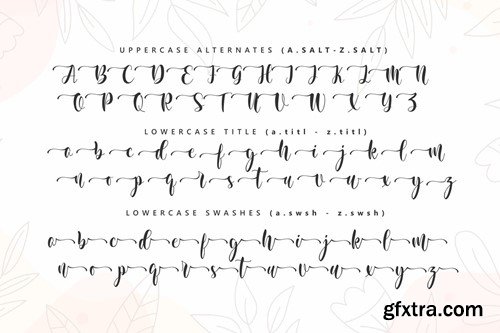 UPPERCASE ALTERNATES (A.SALT-Z.SALT)
A B C D E F G H I J K L M N
O P Q R S T U V W X Y Z
LOWERCASE TITLE (a.titl - z.titl)
a b c d e f g h i j k l m
n o p q r s t u v w x y z
LOWERCASE SWASHES (a.swsh - z.swsh)
a b c d e f g h i j k l m
n o p q r s t u v w x y z
gfxtra.com